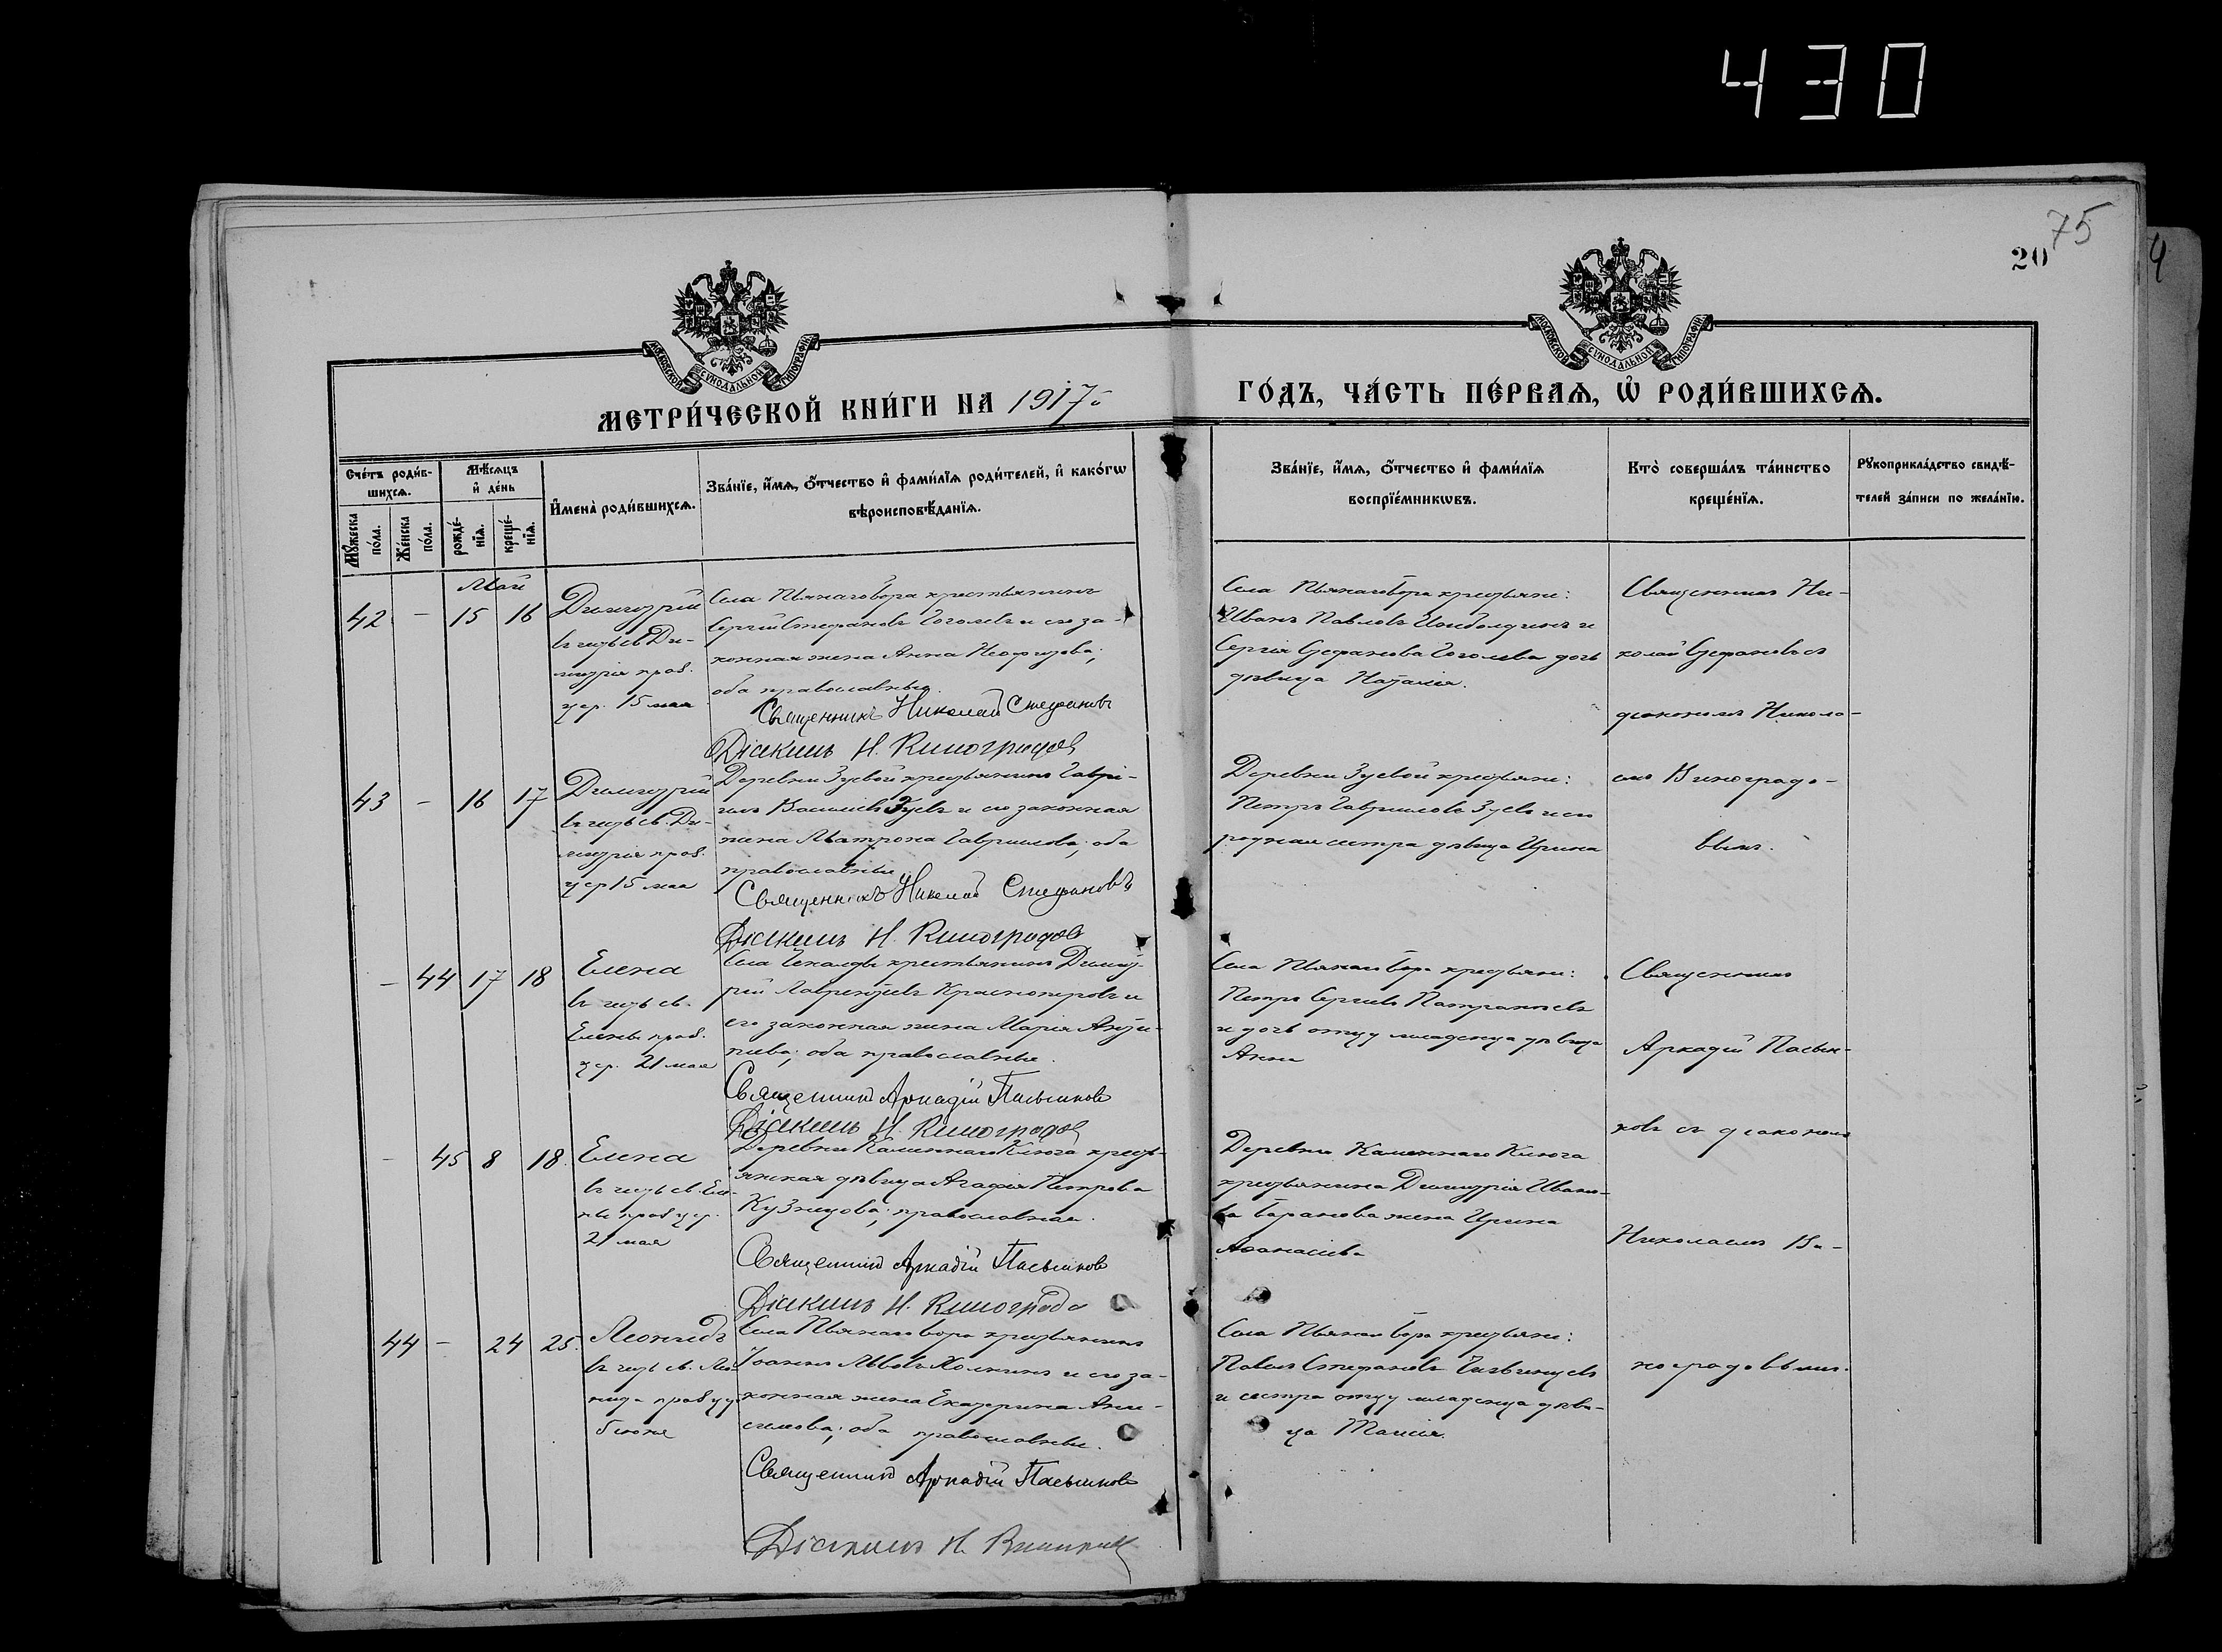 430
75
20
4
МОСКОВСКОЙ СѴНОДАЛЬНОЙ ТИПОГРАФІИ
МОСКОВСКОЙ СѴНОДАЛЬНОЙ ТИПОГРАФІИ
МЕТРИ́ЧЕСКОЙ КНИ́ГИ НА 1917 й
ГО́ДЪ, ЧА́СТЬ ПЕ́РВАѦ, Ѡ҆ РОДИ́ВШИХСѦ.
Сче́тъ роди́в-
шихсѧ.
Мꙋ́жеска по́ла.
Же́нска по́ла.
Мѣ́сѧцъ
и҆ де́нь
рожде́-
нїѧ.
креще́-
нїѧ.
И҆мена̀ роди́вшихсѧ.
Зва́нїе, и҆́мѧ, ѻ҆́тчество и҆ фами́лїѧ роди́телей, и҆ како́гѡ
вѣроисповѣ́данїѧ.
Зва́нїе, и҆́мѧ, ѻ҆́тчество и҆ фами́лїѧ
воспрїе́мникѡвъ.
Кто̀ соверша́лъ та́инство
креще́нїѧ.
Рꙋкоприкла́дство свидѣ́-
телей за́писи по жела́нїю.
Май
42 - 15 16
Димитрій
въ честь св. Ди-
митрія праз.
цер. 15 мая
Села Пьянаго бора крестьянинъ
Сергій Стефановъ Гоголевъ и его за-
конная жена Анна Неофитова;
оба православные.
Священникъ Николай Стефановъ
Діаконъ Н. Виноградов
Села Пьянаго бора крестьяне:
Иванъ Павловъ и
Сергія Стефанова Гоголева дочь
дѣвица Наталія.
Священникъ Ни-
колай Стефановъ съ
діакономъ Никола-
43 - 16 17
Димитрій
въ честь св. Ди-
митрія праз.
цер 15 мая
Деревни Зуевой крестьянинъ Гаврі-
илъ Васильевъ Зуевъ и его законная
жена Матрона Гаврилова; оба
православные
Священникъ Николай Стефановъ
Діаконъ Н. Виноградов
Деревни Зуевой крестьяне:
Петръ Гавриловъ Зуевъ и его
родная сестра дѣвица Ирина
емъ Виноградо-
вымъ.
- 44 17 18
Елена
въ честь св.
Елены праз.
цер. 21 мая
Села Чекалды крестьянинъ Димит-
рій Лаврентіевъ Красноперовъ и
его законная жена Марія Анти-
пиева; оба православные.
Священникъ Аркадій Пасынков
Діаконъ Н. Виноградов
Села Пьянаго бора крестьяне:
Петръ Сергіевъ
и дочь отцу младенца дѣвица
Анна
Священникъ
Аркадій Пасын-
ковъ съ діакономъ
- 45 8 18.
Елена
въ честь св. Еле-
ны праз цер.
21 мая
Деревни Каменнаго Ключа кресть-
янская дѣвица Агафія Петрова
Кузнецова; православная.
Священникъ Аркадій Пасынков
Діаконъ Н. Виноградо
Деревни Каменнаго Ключа
крестьянина Димитрія Ивано-
ва Баранова жена Ирина
Аѳанасіева
Николаемъ Ви-
44 - 24 25.
Леонидъ
въ честь св. Лео-
нида праз цер
5 іюня
Села Пьянаго бора крестьянинъ
Іоаннъ Львовъ Холкинъ и его за-
конная жена Екатерина Ани-
симова; оба православные.
Священникъ Аркадій Пасынков
Діаконъ Н.
Села Пьянаго бора крестьяне:
Павелъ Стефановъ
и сестра отцу младенца дѣви-
ца Таисія.
ноградовымъ.